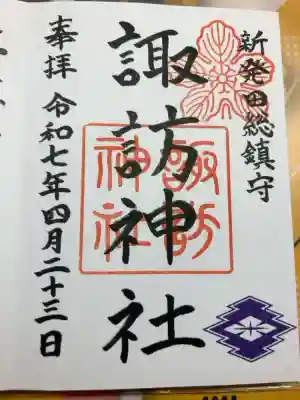 新発田総鎮守
諏訪神社
諏訪神社
奉拝 令和七年四月二十三日